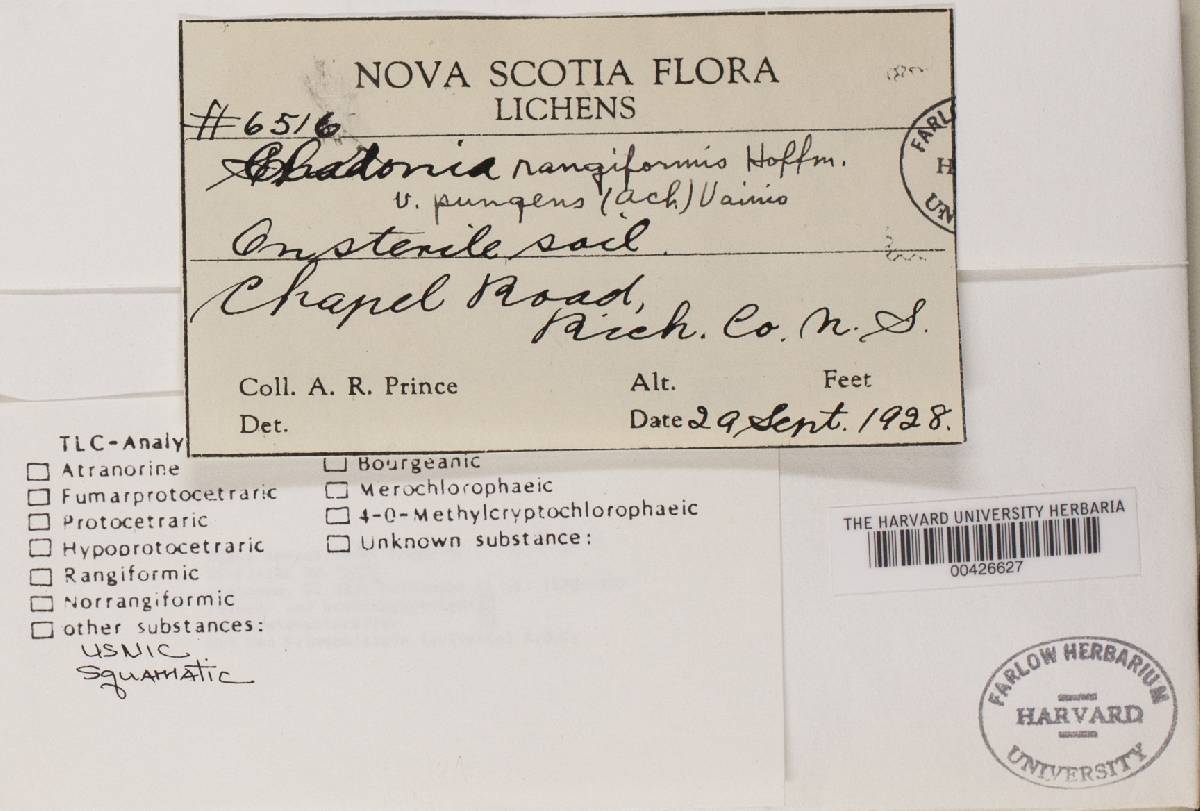 NOVA SCOTIA FLORA
LICHENS
#6516
Cladonia rangiformis Hoffm.
v. pungens (Ach) Vainio
On sterile soil.
Chapel Road,
Rich. Co. N. S.
Coll. A. R. Prince
Alt. Feet
Det.
Date 29 Sept. 1928.
FARL
H
UN
TLC-Analy
Atranorine
Fumarprotocetraric
Protocetraric
Hypoprotocetraric
Rangiformic
Norrangiformic
other substances:
USNIC
SquAMAtic
Bourgeanic
Merochlorophaeic
4-O-Methylcryptochlorophaeic
Unknown substance:
THE HARVARD UNIVERSITY HERBARIA
00426627
FARLOW HERBARIUM
HARVARD
UNIVERSITY